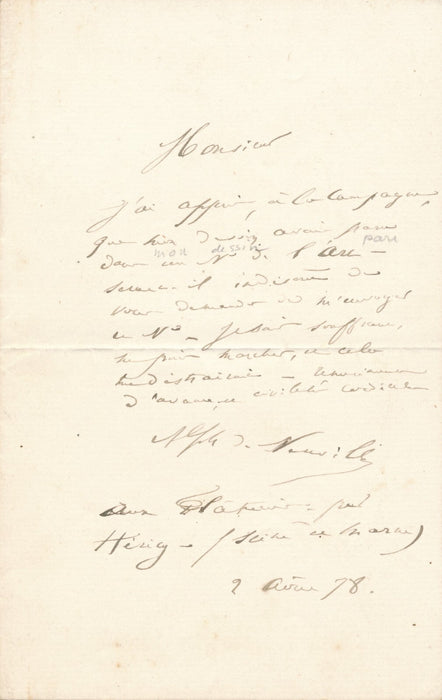 Monsieur
J'ai appris, à la campagne,
que mon dessin avait paru
mon dessin paru
dans un N° de l'Art –
serait-il indiscret de
vous demander de m'envoyer
ce N° – Je suis souffrant,
ne puis marcher, et cela
me distrairait – remerciements
d'avance, et civilités cordiales
Alph de Neuville
aux Plâtreries – par
Héricy – (Seine et Marne)
2 Août 78.